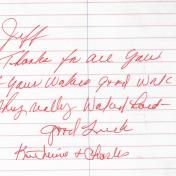 Jeff
Thanks for all your
your Wakes good work
They really Waked hard
Good Luck
Katherine + Charles